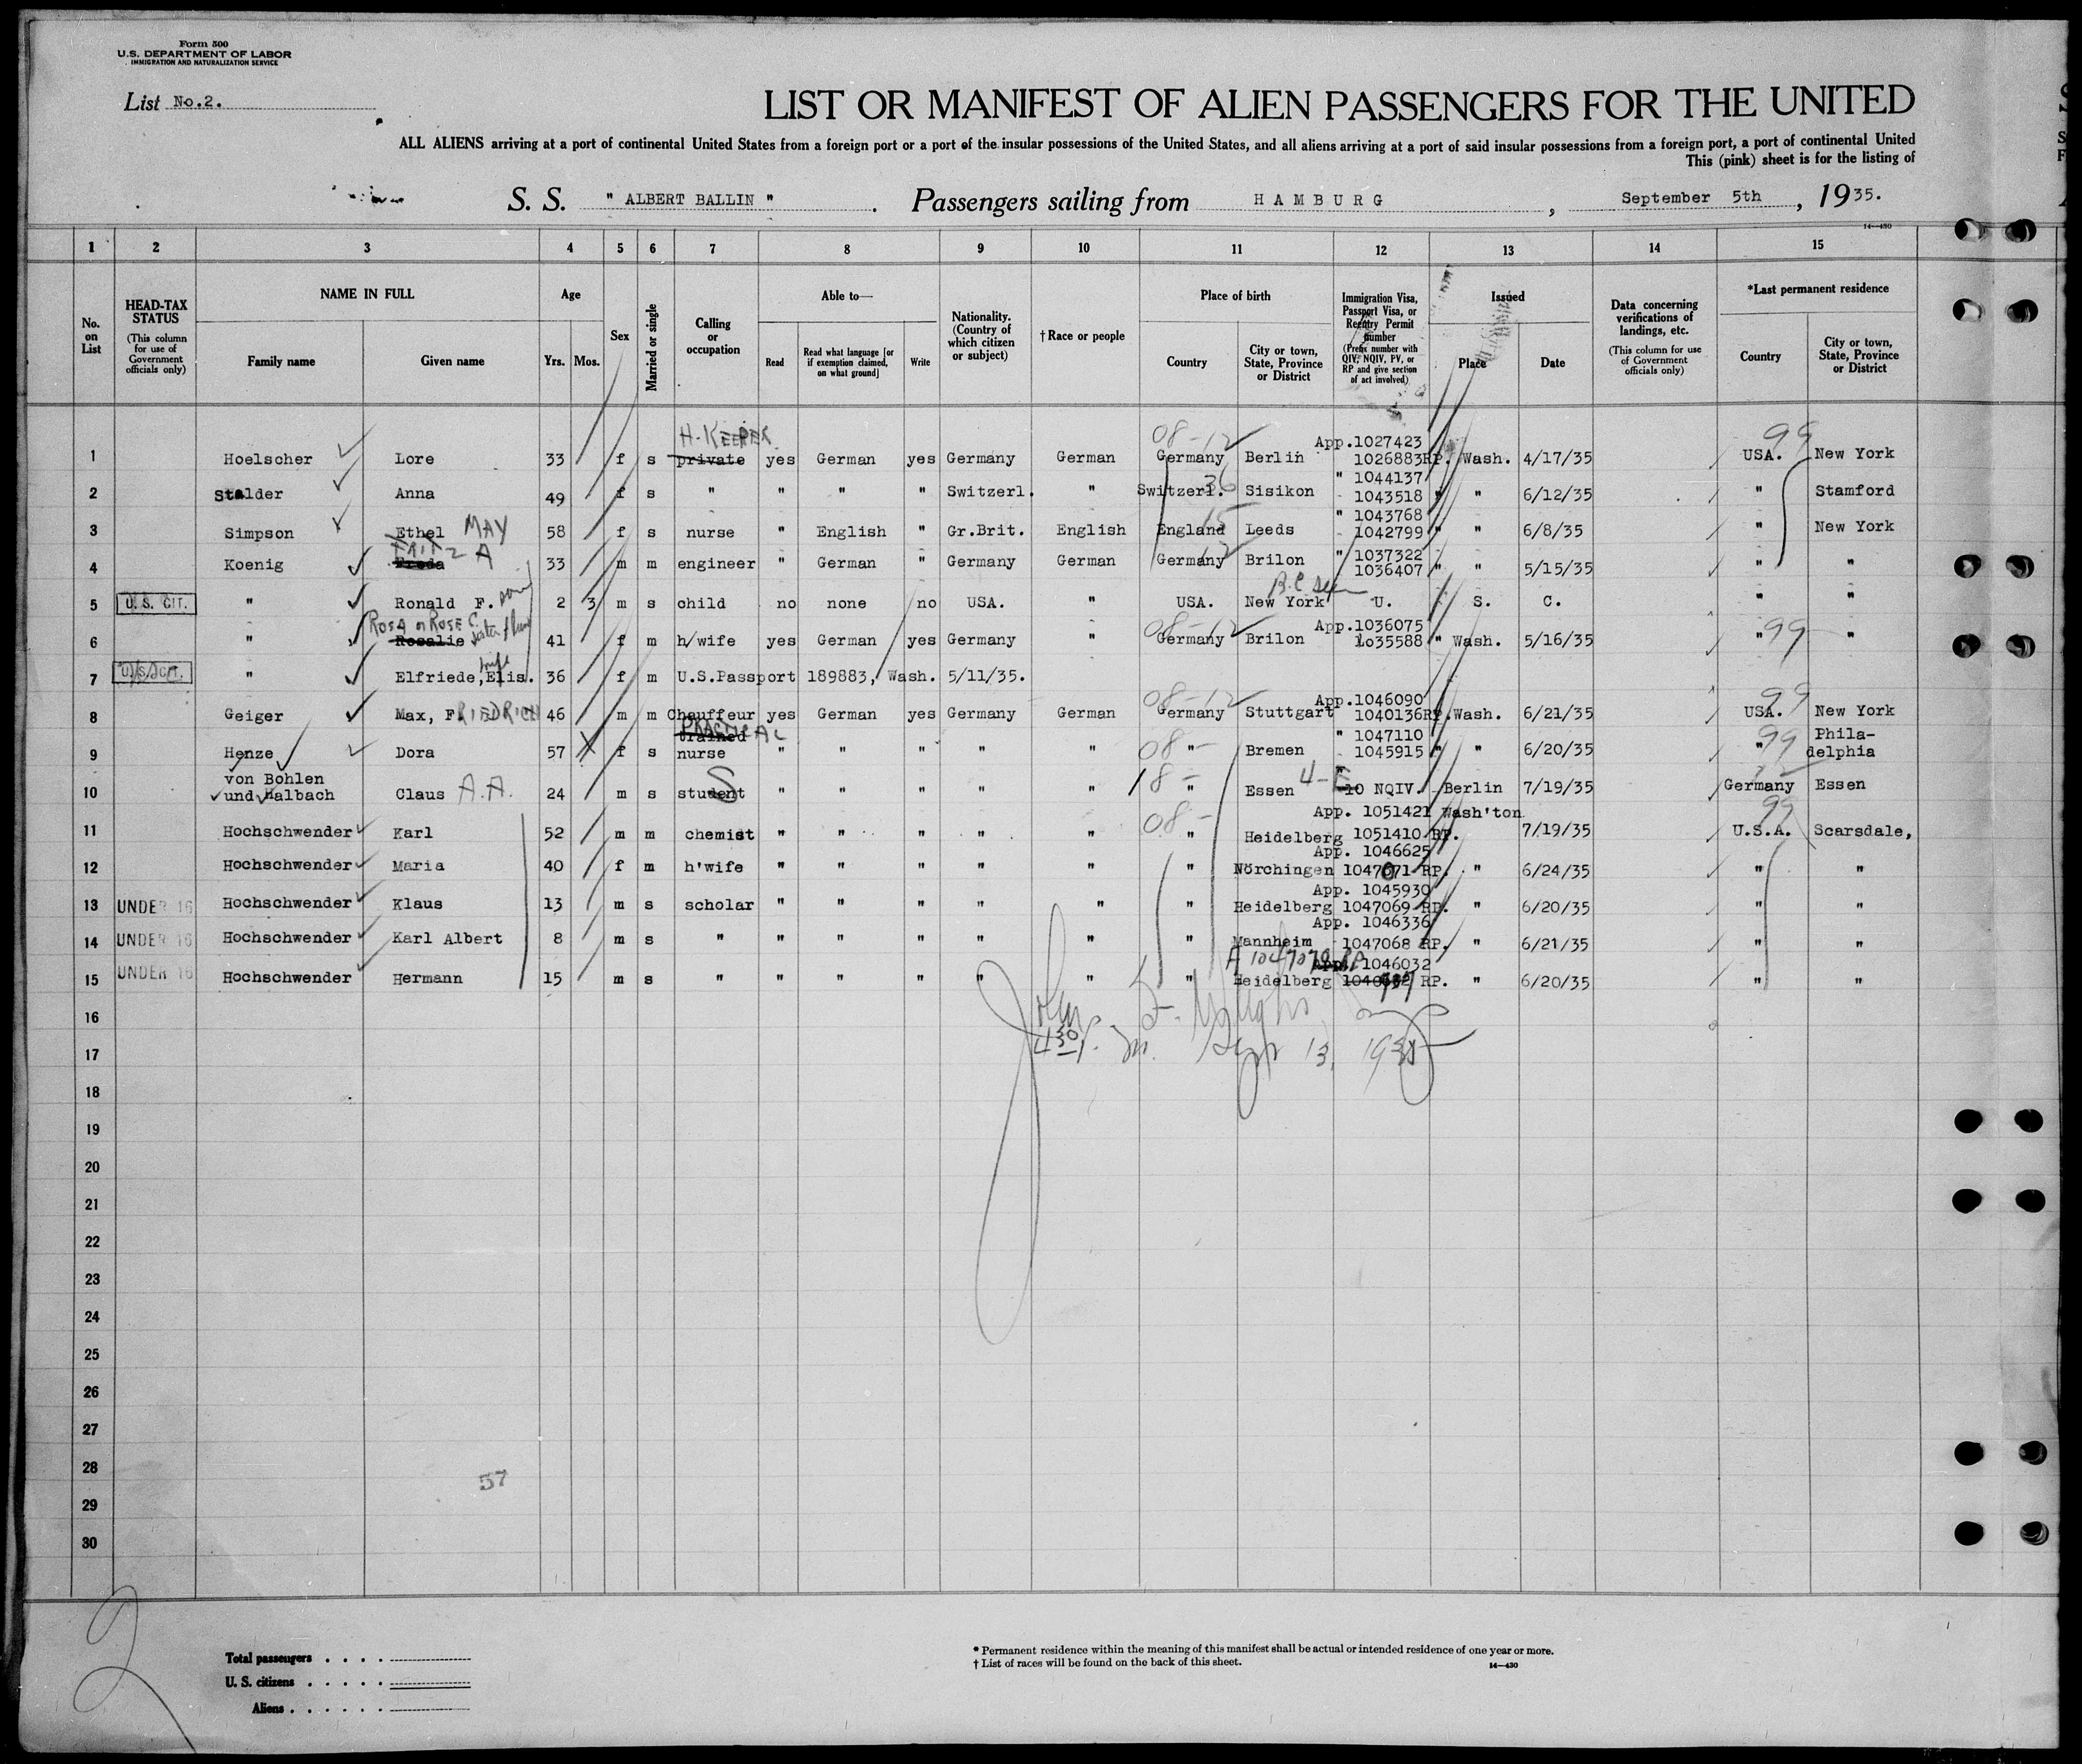 Form 500
U.S. DEPARTMENT OF LABOR
IMMIGRATION AND NATURALIZATION SERVICE
List No.2.
LIST OR MANIFEST OF ALIEN PASSENGERS FOR THE UNITED
ALL ALIENS arriving at a port of continental United States from a foreign port or a port of the insular possessions of the United States, and all aliens arriving at a port of said insular possessions from a foreign port, a port of continental United
This (pink) sheet is for the listing of
S. S. " ALBERT BALLIN " . Passengers sailing from HAMBURG , September 5th , 1935.
14—430
1 2 3 4 5 6 7 8 9 10 11 12 13 14 15
No. on List
HEAD-TAX STATUS
(This column for use of Government officials only)
NAME IN FULL
Family name Given name
Age
Yrs. Mos.
Sex
Married or single
Calling or occupation
Able to—
Read
Read what language [or if exemption claimed, on what ground]
Write
Nationality. (Country of which citizen or subject)
† Race or people
Place of birth
Country
City or town, State, Province or District
Immigration Visa, Passport Visa, or Reentry Permit number
(Prefix number with QIV, NQIV, PV, or RP and give section of act involved)
Issued
Place Date
Data concerning verifications of landings, etc.
(This column for use of Government officials only)
*Last permanent residence
Country
City or town, State, Province or District
H-KEEPER 08-12 App.1027423 99
1 Hoelscher Lore 33 f s private yes German yes Germany German Germany Berlin 1026883RP. Wash. 4/17/35 USA. New York
36 " 1044137
2 Stalder Anna 49 f s " " " " Switzerl. " Switzerl. Sisikon 1043518 " " 6/12/35 " Stamford
MAY 15 " 1043768
3 Simpson Ethel 58 f s nurse " English " Gr.Brit. English England Leeds 1042799 " " 6/8/35 " New York
FRITZ A 12 " 1037322
4 Koenig Freda 33 m m engineer " German " Germany German Germany Brilon 1036407 " " 5/15/35 " "
5 U. S. CIT. " Ronald F. son 2 3 m s child no none no USA. " USA. New York U. S. C. " "
ROSA or ROSE C. 08-12 App.1036075
6 " Rosalie 41 f m h/wife yes German yes Germany " Germany Brilon 1o35588 " Wash. 5/16/35 " 99 "
wife
7 U.S. CIT. " Elfriede,Elis. 36 f m U.S.Passport 189883, Wash. 5/11/35.
08-12 App.1046090 99
8 Geiger Max, FRIEDRICH 46 m m Chauffeur yes German yes Germany German Germany Stuttgart 1040136RP.Wash. 6/21/35 USA. New York
PRACTICAL
trained " 1047110 Phila-
9 Henze Dora 57 f s nurse " " " " " 08- " Bremen 1045915 " " 6/20/35 " 99 delphia
von Bohlen
10 und Halbach Claus A.A. 24 m s student S " " " " " 18- " Essen 4-E 10 NQIV. Berlin 7/19/35 Germany Essen
App. 1051421 Wash'ton 99
11 Hochschwender Karl 52 m m chemist " " " " " 08- " Heidelberg 1051410 RP. 7/19/35 U.S.A. Scarsdale,
App. 1046625
12 Hochschwender Maria 40 f m h'wife " " " " " " Nörchingen 1047071 RP. " 6/24/35 " "
App. 1045930
13 UNDER 16 Hochschwender Klaus 13 m s scholar " " " " " " Heidelberg 1047069 RP. " 6/20/35 " "
App. 1046336
14 UNDER 16 Hochschwender Karl Albert 8 m s " " " " " " " Mannheim 1047068 RP. " 6/21/35 " "
A 1047070 RP
App. 1046032
15 UNDER 16 Hochschwender Hermann 15 m s " " " " " " " Heidelberg RP. " 6/20/35 " "
16
John
17
430 Sept 13, 1935
18
19
20
21
22
23
24
25
26
27
28
57
29
30
2
Total passengers
U. S. citizens
Aliens
* Permanent residence within the meaning of this manifest shall be actual or intended residence of one year or more.
† List of races will be found on the back of this sheet.
14—430